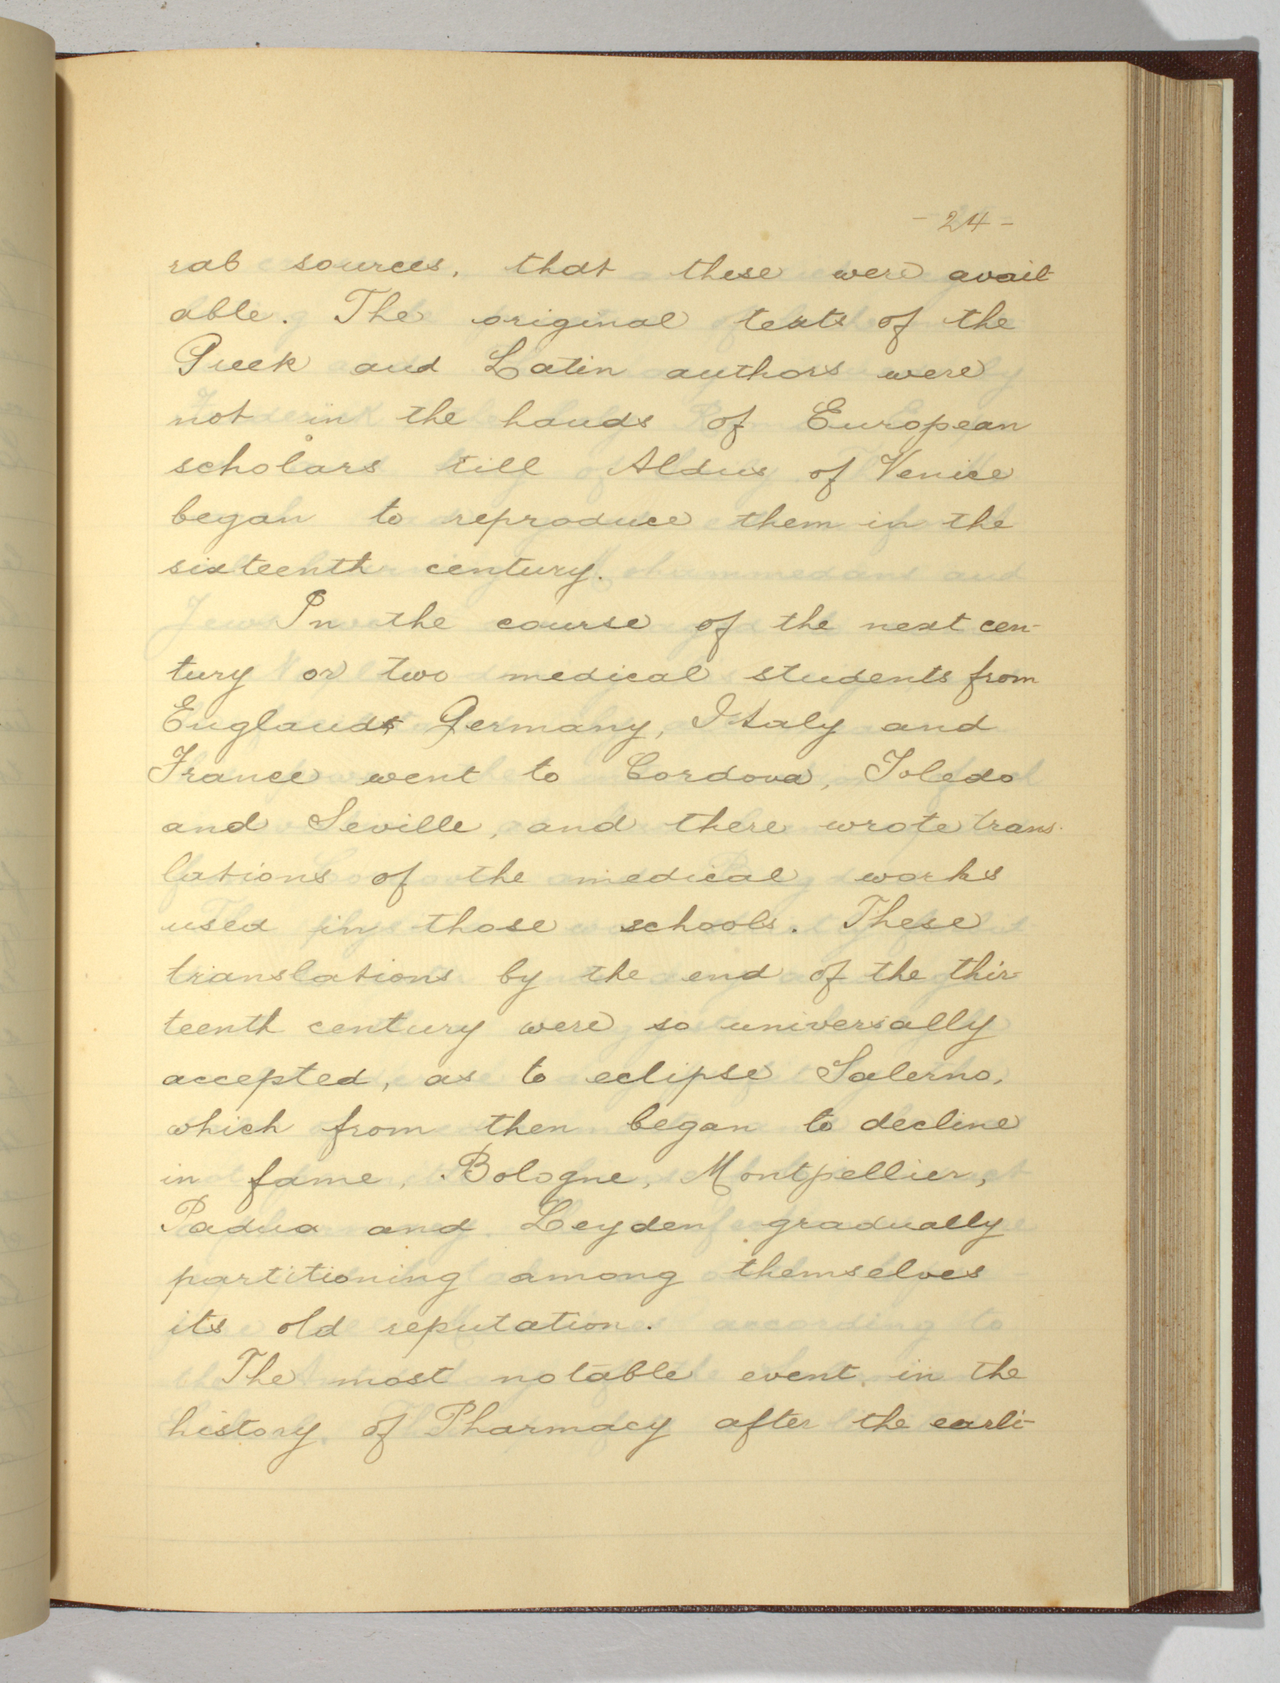 - 24 -
rab sources, that these were avail-
able. The original texts of the
Greek and Latin authors were
not in the hands of European
scholars till Aldus of Venice
began to reproduce them in the
sixteenth century.
In the course of the next cen-
tury or two medical students from
England, Germany, Italy and
France went to Cordova, Toledo
and Seville, and there wrote trans-
lations of the medical works
used in those schools. These
translations by the end of the thir-
teenth century were so universally
accepted, as to eclipse Salerno,
which from then began to decline
in fame, Bologne, Montpellier,
Padua and Leyden gradually
partitioning among themselves
its old reputation.
The most notable event in the
history of Pharmacy after the earli-